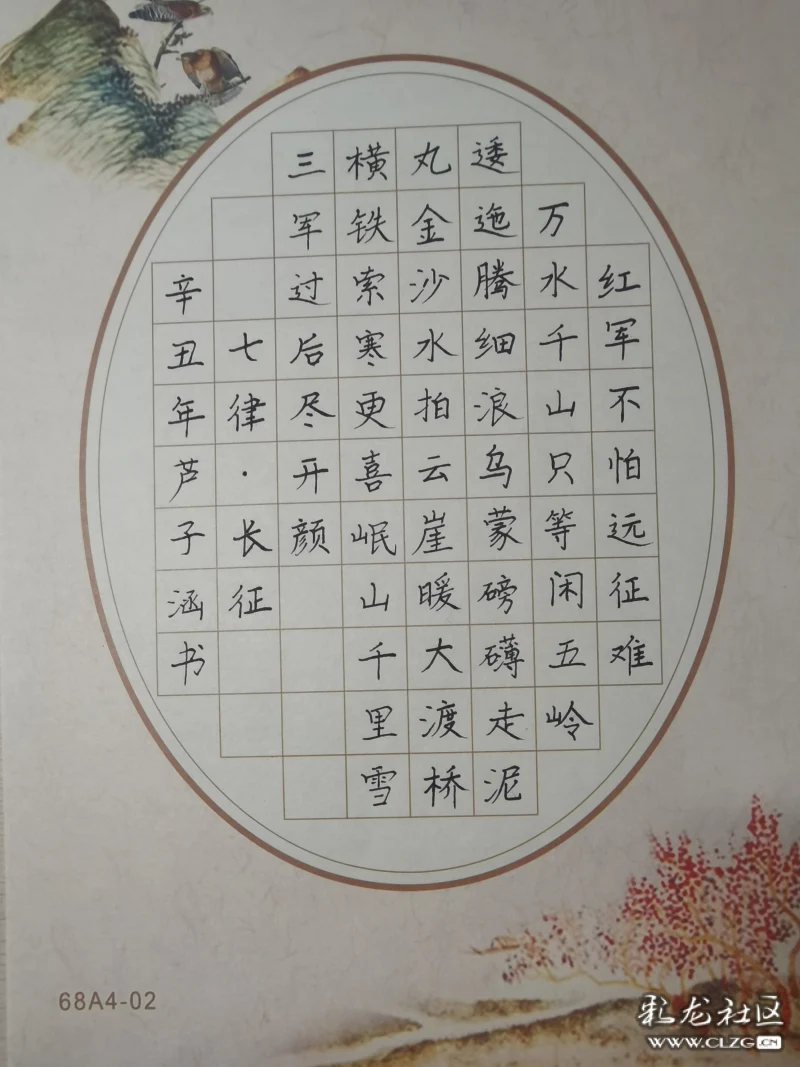 红军不怕远征难
万水千山只等闲五岭
逶迤腾细浪乌蒙磅礴走泥
丸金沙水拍云崖暖大渡桥
横铁索寒更喜岷山千里雪
三军过后尽开颜
七律·长征
辛丑年芦子涵书
68A4-02
彩龙社区
WWW.CLZG.CN